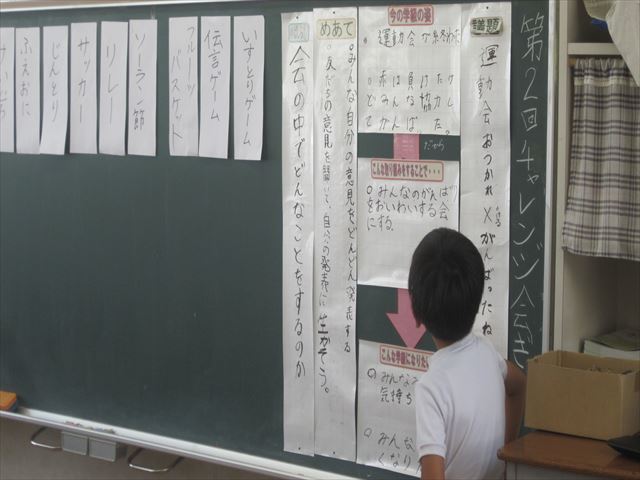 第2回チャレンジ会ぎ
議題
運動会おつかれ×がんばったね
今の学級の姿
運動会が終わった
赤は負けたけ
どみんな協力し
てがんばった。
だから
こんな取り組みをすることで・・・
みんなのがんば
をおいわいする会
にする。
こんな学級になりたい
みんな
気持ち
みんな
くなり
めあて
◎みんな自分の意見をどんどん発表する
○友だちの意見を聞いて、自分の発表に生かそう。
会の中でどんなことをするのか
いすとりゲーム
伝言ゲーム
フルーツバスケット
ソーラン節
リレー
サッカー
じんとり
ふえおに